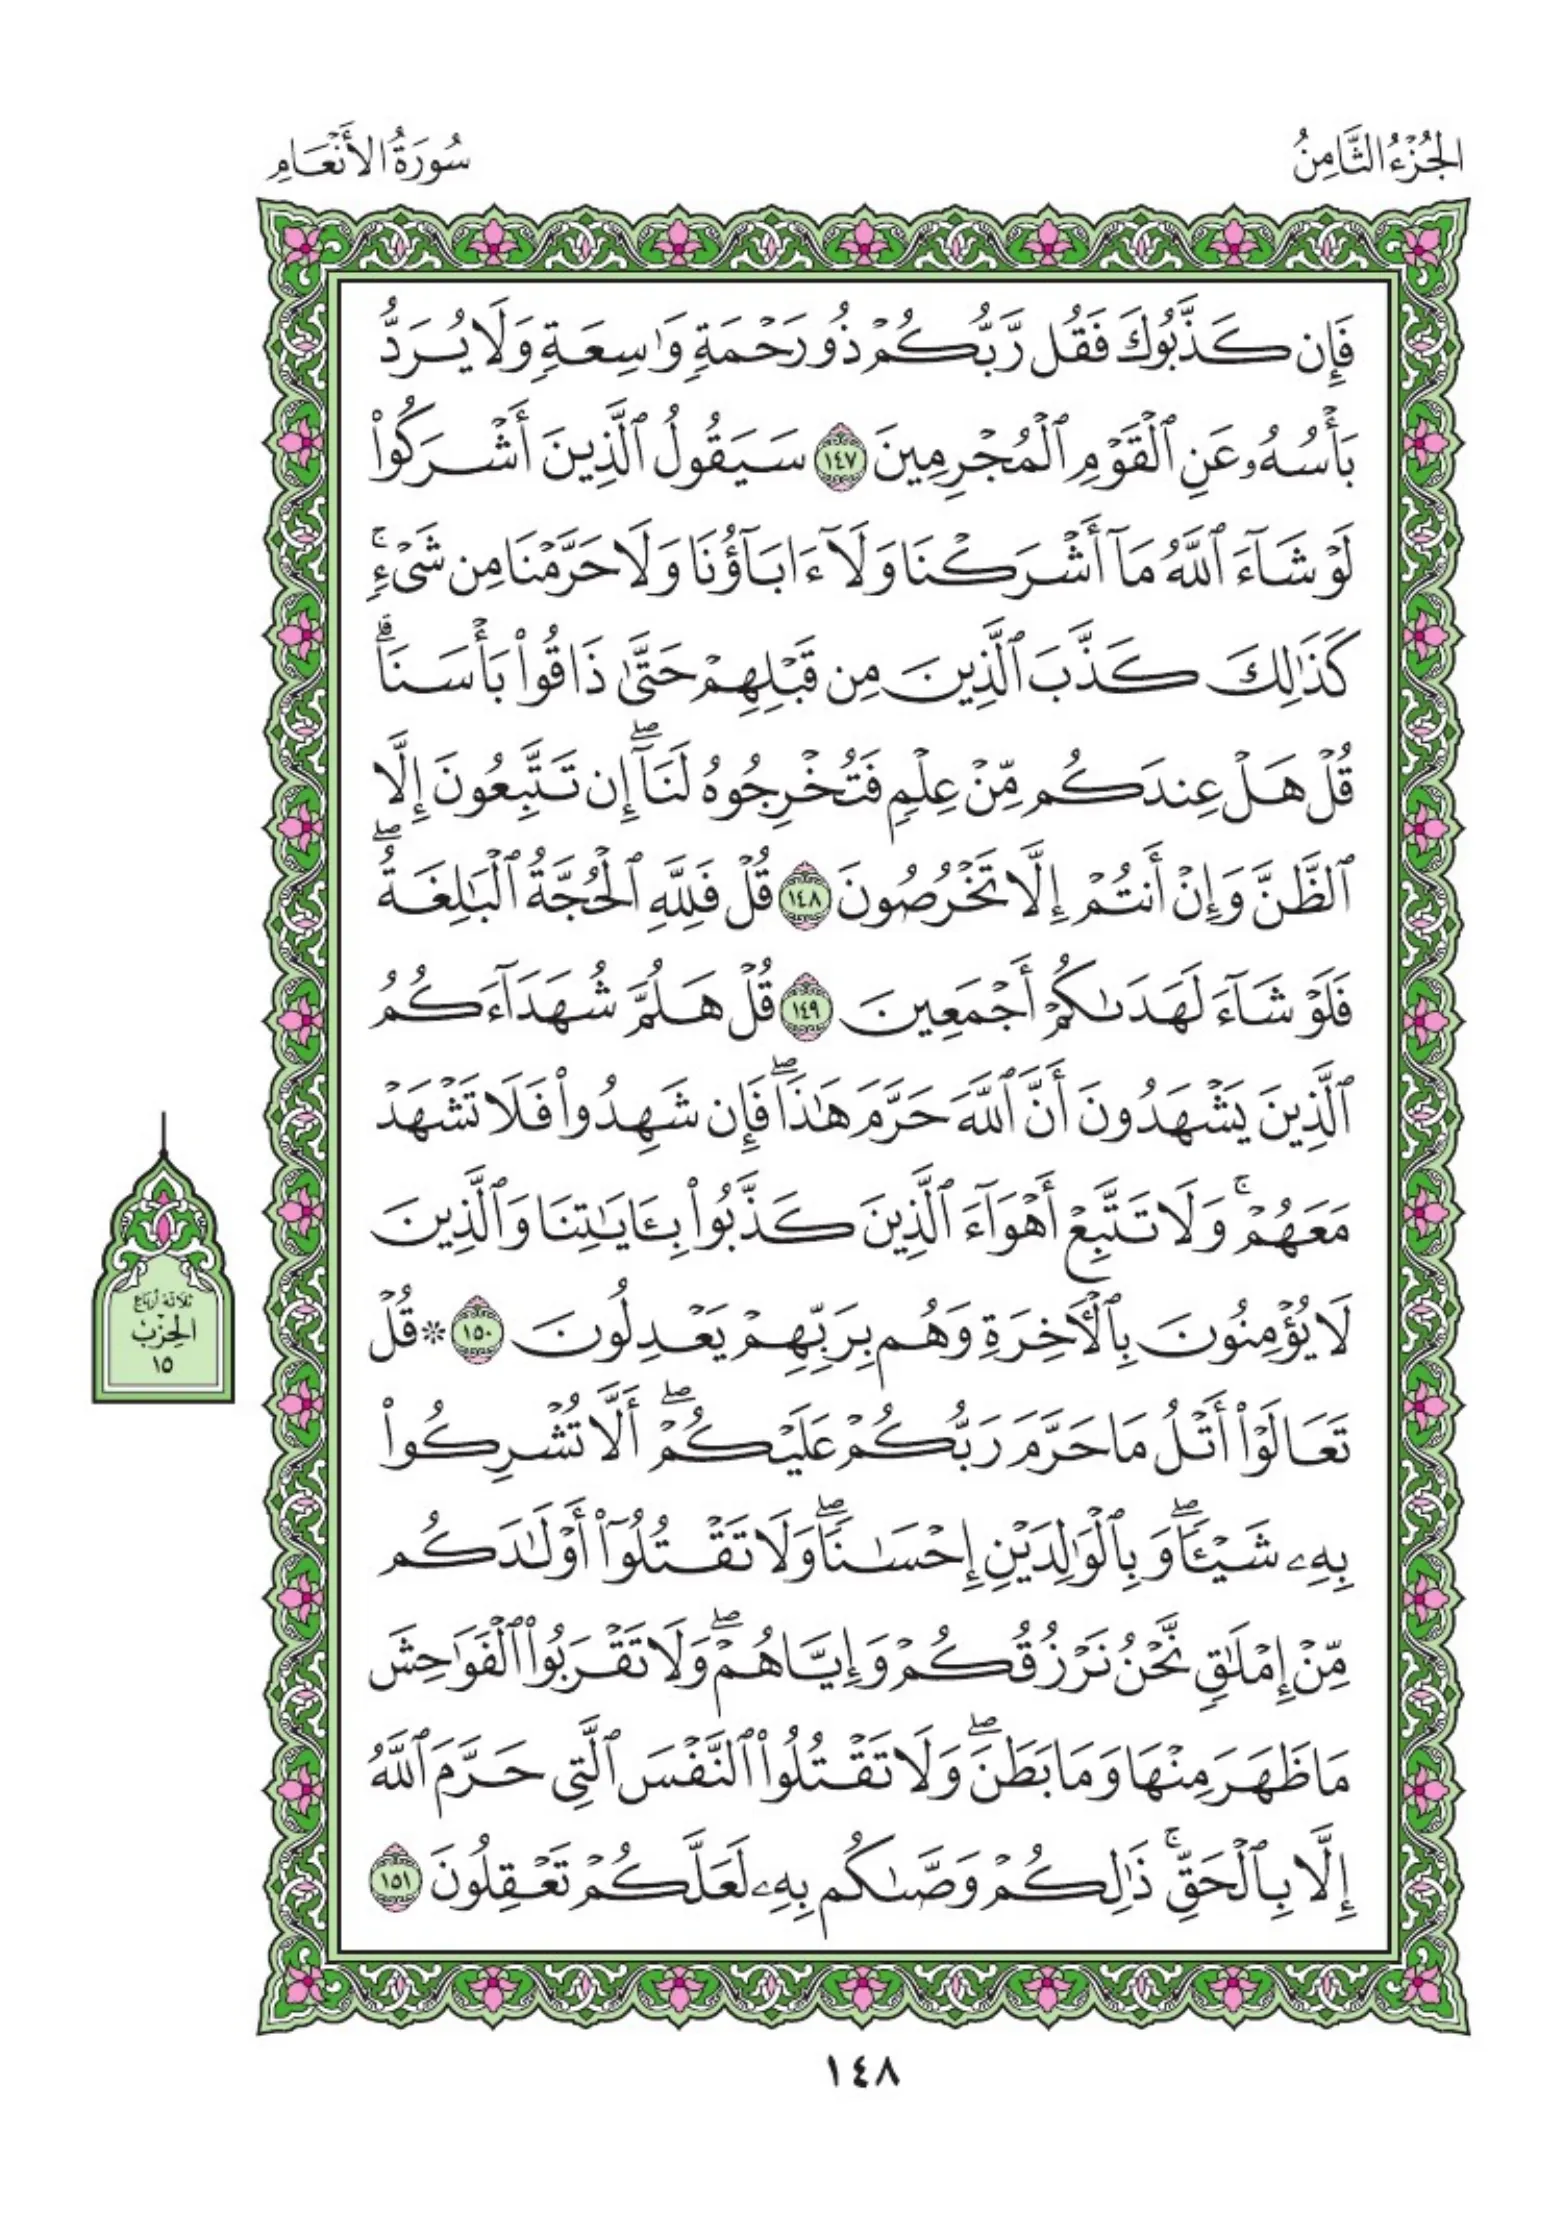 الجُزْءُ الثَّامِنُ
سُورَةُ الأَنْعَامِ
فَإِن كَذَّبُوكَ فَقُل رَّبُّكُمْ ذُو رَحْمَةٍ وَٰسِعَةٍ وَلَا يُرَدُّ
بَأْسُهُۥ عَنِ ٱلْقَوْمِ ٱلْمُجْرِمِينَ ١٤٧ سَيَقُولُ ٱلَّذِينَ أَشْرَكُوا۟
لَوْ شَآءَ ٱللَّهُ مَآ أَشْرَكْنَا وَلَآ ءَابَآؤُنَا وَلَا حَرَّمْنَا مِن شَىْءٍۚ
كَذَٰلِكَ كَذَّبَ ٱلَّذِينَ مِن قَبْلِهِمْ حَتَّىٰ ذَاقُوا۟ بَأْسَنَاۗ
قُلْ هَلْ عِندَكُم مِّنْ عِلْمٍ فَتُخْرِجُوهُ لَنَآۖ إِن تَتَّبِعُونَ إِلَّا
ٱلظَّنَّ وَإِنْ أَنتُمْ إِلَّا تَخْرُصُونَ ١٤٨ قُلْ فَلِلَّهِ ٱلْحُجَّةُ ٱلْبَٰلِغَةُۖ
فَلَوْ شَآءَ لَهَدَىٰكُمْ أَجْمَعِينَ ١٤٩ قُلْ هَلُمَّ شُهَدَآءَكُمُ
ٱلَّذِينَ يَشْهَدُونَ أَنَّ ٱللَّهَ حَرَّمَ هَٰذَاۖ فَإِن شَهِدُوا۟ فَلَا تَشْهَدْ
مَعَهُمْۚ وَلَا تَتَّبِعْ أَهْوَآءَ ٱلَّذِينَ كَذَّبُوا۟ بِـَٔايَٰتِنَا وَٱلَّذِينَ
لَا يُؤْمِنُونَ بِٱلْـَٔاخِرَةِ وَهُم بِرَبِّهِمْ يَعْدِلُونَ ١٥٠ ۞ قُلْ
تَعَالَوْا۟ أَتْلُ مَا حَرَّمَ رَبُّكُمْ عَلَيْكُمْۖ أَلَّا تُشْرِكُوا۟
بِهِۦ شَيْـًٔاۖ وَبِٱلْوَٰلِدَيْنِ إِحْسَٰنًاۖ وَلَا تَقْتُلُوٓا۟ أَوْلَٰدَكُم
مِّنْ إِمْلَٰقٍۢ نَّحْنُ نَرْزُقُكُمْ وَإِيَّاهُمْۖ وَلَا تَقْرَبُوا۟ ٱلْفَوَٰحِشَ
مَا ظَهَرَ مِنْهَا وَمَا بَطَنَۖ وَلَا تَقْتُلُوا۟ ٱلنَّفْسَ ٱلَّتِى حَرَّمَ ٱللَّهُ
إِلَّا بِٱلْحَقِّۚ ذَٰلِكُمْ وَصَّىٰكُم بِهِۦ لَعَلَّكُمْ تَعْقِلُونَ ١٥١
ثلاثة أرباع
الحِزْب
١٥
١٤٨